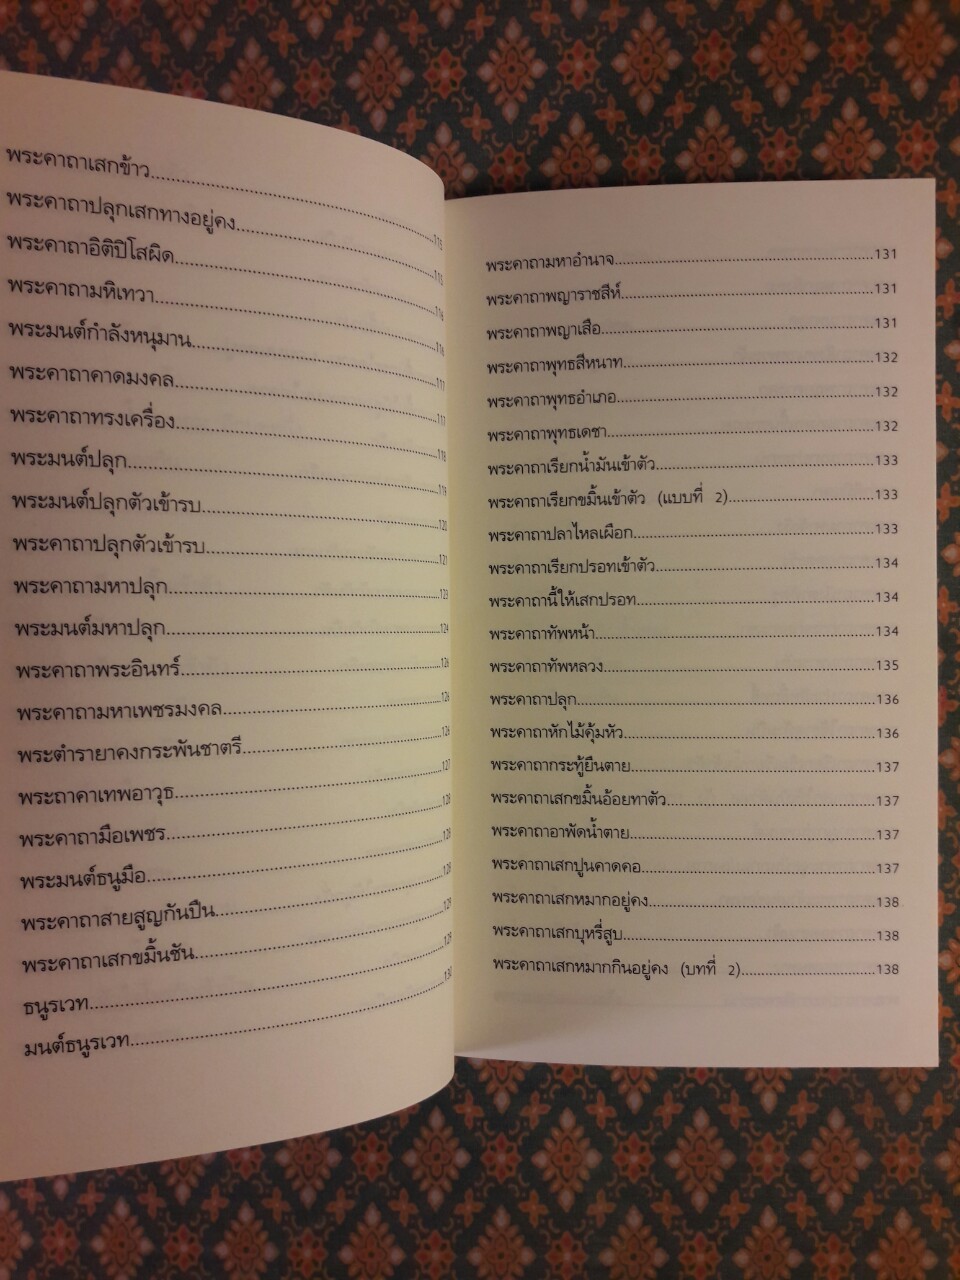 พระคาถาเสกข้าว
พระคาถาปลุกเสกทางอยู่คง.....115
พระคาถาอิติปิโสผิด.....115
พระคาถามหิเทวา.....116
พระมนต์กำลังหนุมาน.....116
พระคาถาคาดมงคล.....117
พระคาถาทรงเครื่อง.....117
พระมนต์ปลุก.....118
พระมนต์ปลุกตัวเข้ารบ.....119
พระคาถาปลุกตัวเข้ารบ.....120
พระคาถามหาปลุก.....121
พระมนต์มหาปลุก.....123
พระคาถาพระอินทร์.....124
พระคาถามหาเพชรมงคล.....126
พระตำรายาคงกระพันชาตรี.....126
พระถาคาเทพอาวุธ.....126
พระคาถามือเพชร.....127
พระมนต์ธนูมือ.....128
พระคาถาสายสูญกันปืน.....128
พระคาถาเสกขมิ้นชัน.....128
ธนูรเวท.....129
มนต์ธนูรเวท.....130
พระคาถามหาอำนาจ.....131
พระคาถาพญาราชสีห์.....131
พระคาถาพญาเสือ.....131
พระคาถาพุทธสีหนาท.....132
พระคาถาพุทธอำเภอ.....132
พระคาถาพุทธเดชา.....132
พระคาถาเรียกน้ำมันเข้าตัว.....133
พระคาถาเรียกขมิ้นเข้าตัว (แบบที่ 2).....133
พระคาถาปลาไหลเผือก.....133
พระคาถาเรียกปรอทเข้าตัว.....134
พระคาถานี้ให้เสกปรอท.....134
พระคาถาทัพหน้า.....134
พระคาถาทัพหลวง.....135
พระคาถาปลุก.....136
พระคาถาหักไม้คุ้มหัว.....136
พระคาถากระทู้ยืนตาย.....137
พระคาถาเสกขมิ้นอ้อยทาตัว.....137
พระคาถาอาพัดน้ำตาย.....137
พระคาถาเสกปูนคาดคอ.....137
พระคาถาเสกหมากอยู่คง.....138
พระคาถาเสกบุหรี่สูบ.....138
พระคาถาเสกหมากกินอยู่คง (บทที่ 2).....138